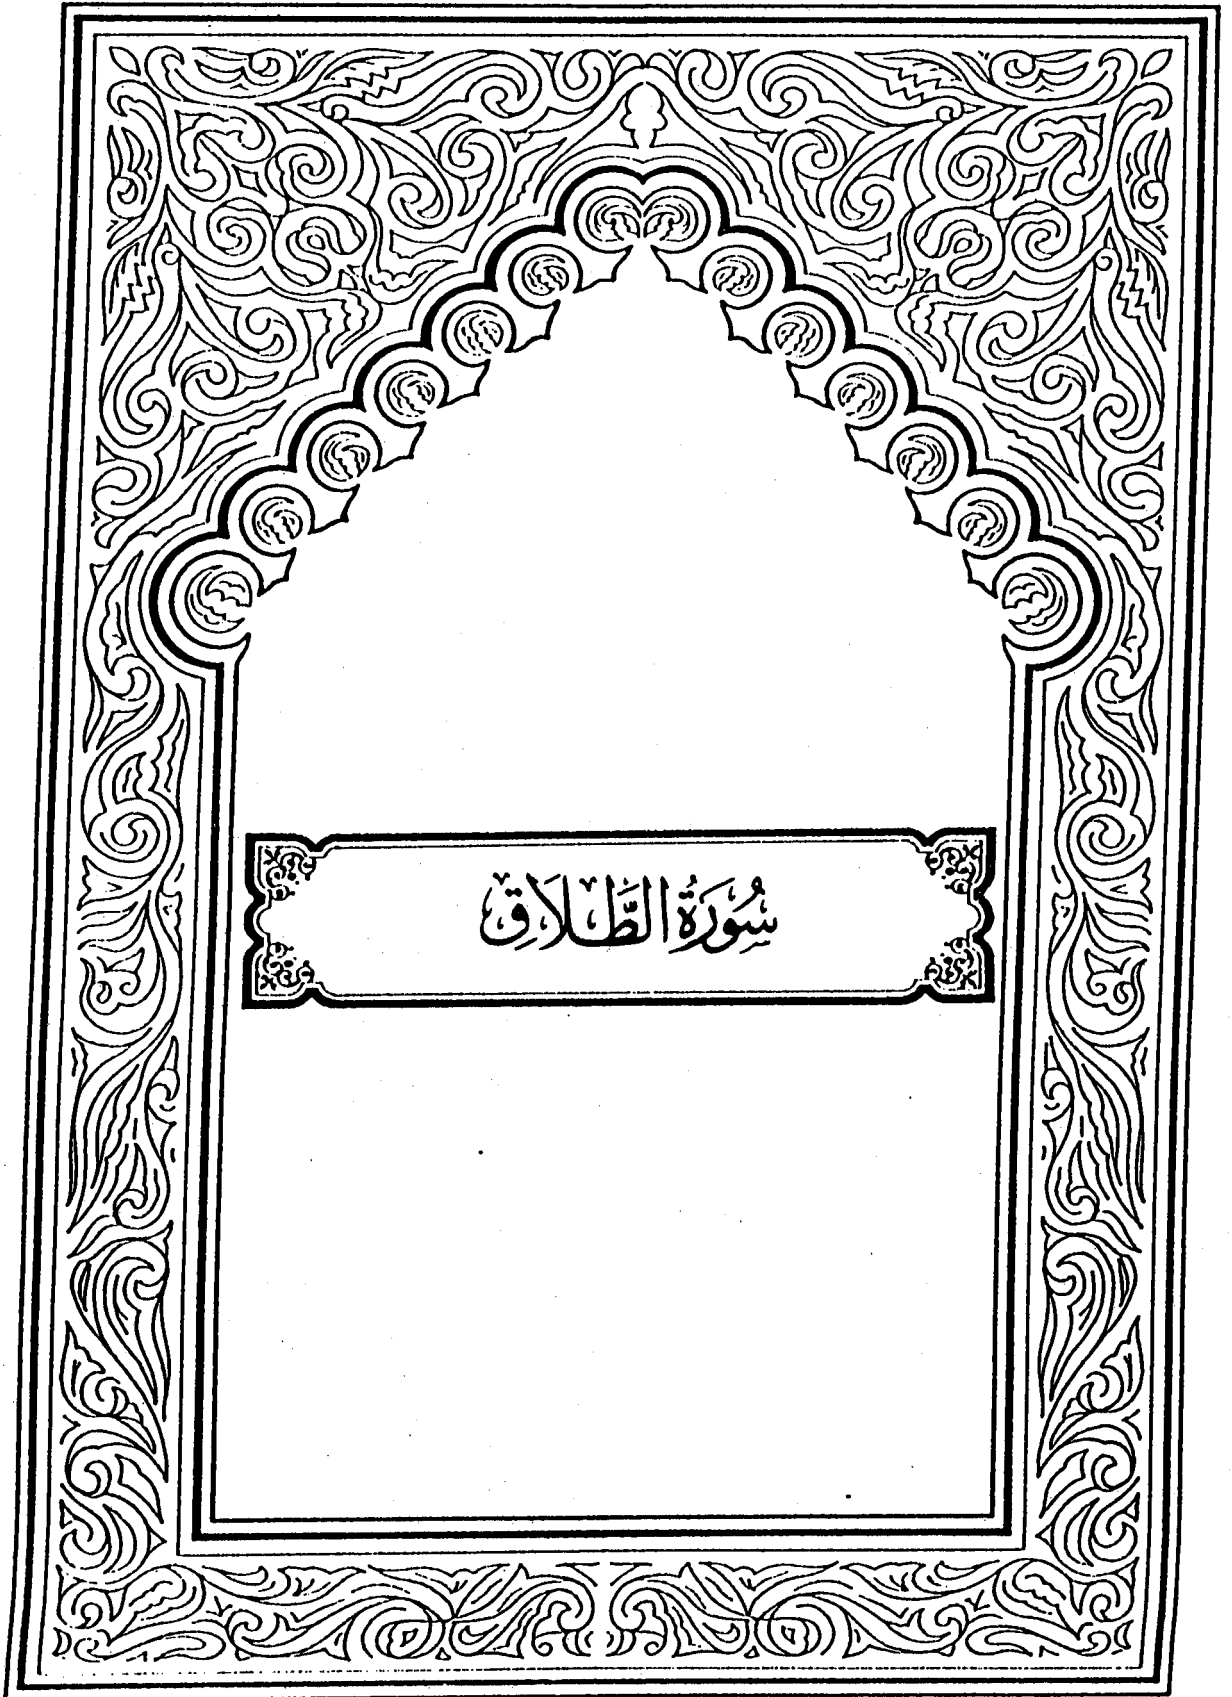 سُورَةُ الطَّلَاقِ